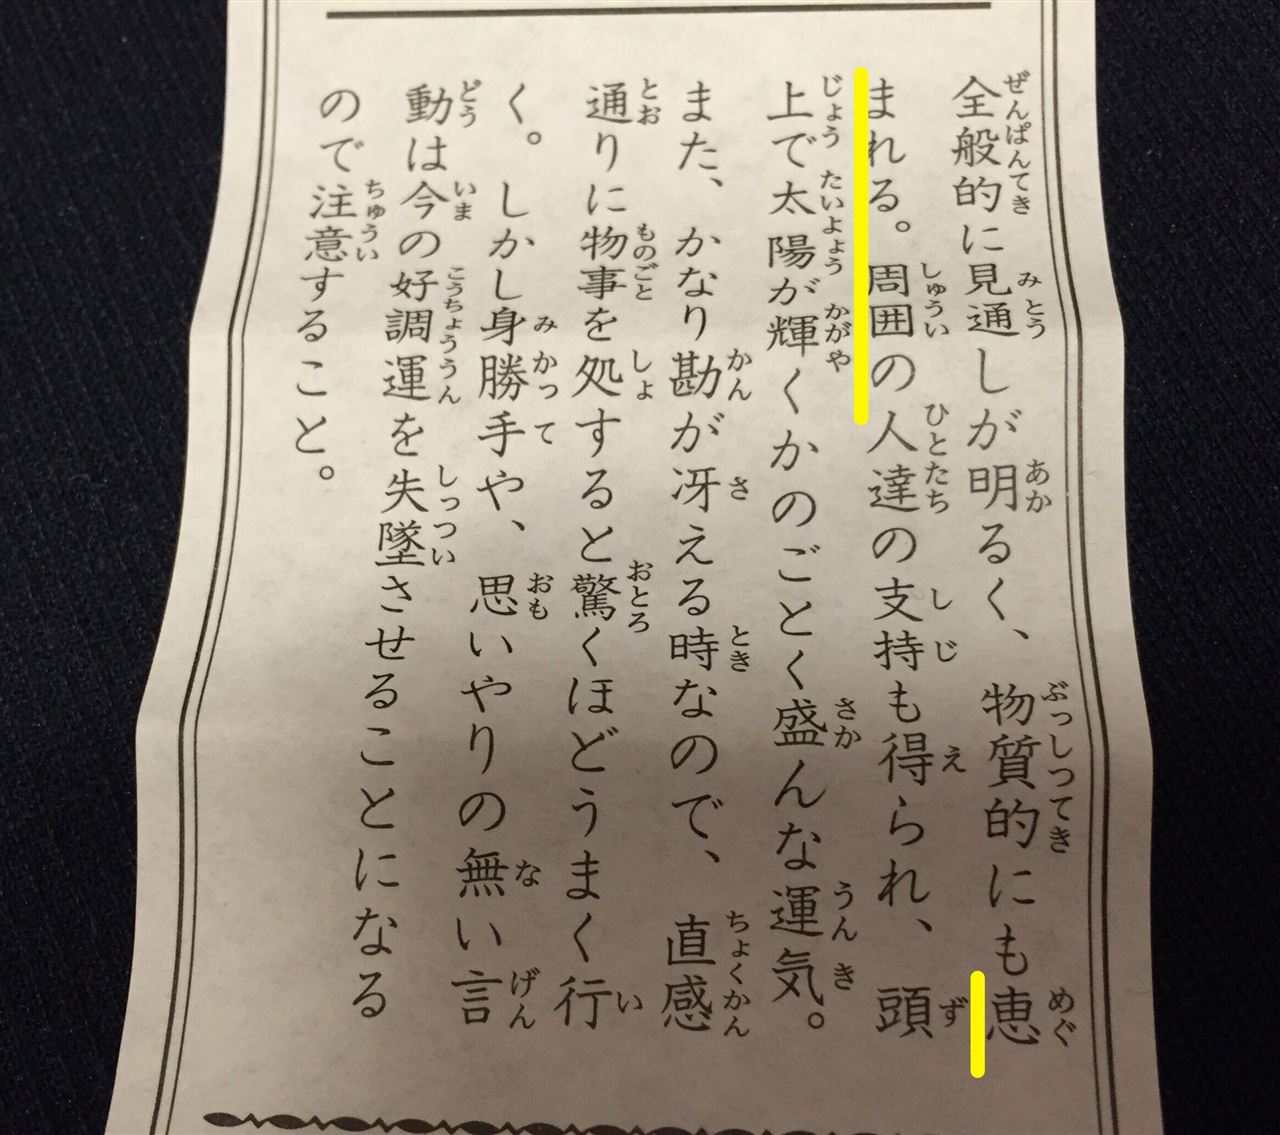 全般的に見通しが明るく、物質的にも恵
まれる。周囲の人達の支持も得られ、頭
上で太陽が輝くかのごとく盛んな運気。
また、かなり勘が冴える時なので、直感
通りに物事を処すると驚くほどうまく行
く。しかし身勝手や、思いやりの無い言
動は今の好調運を失墜させることになる
ので注意すること。